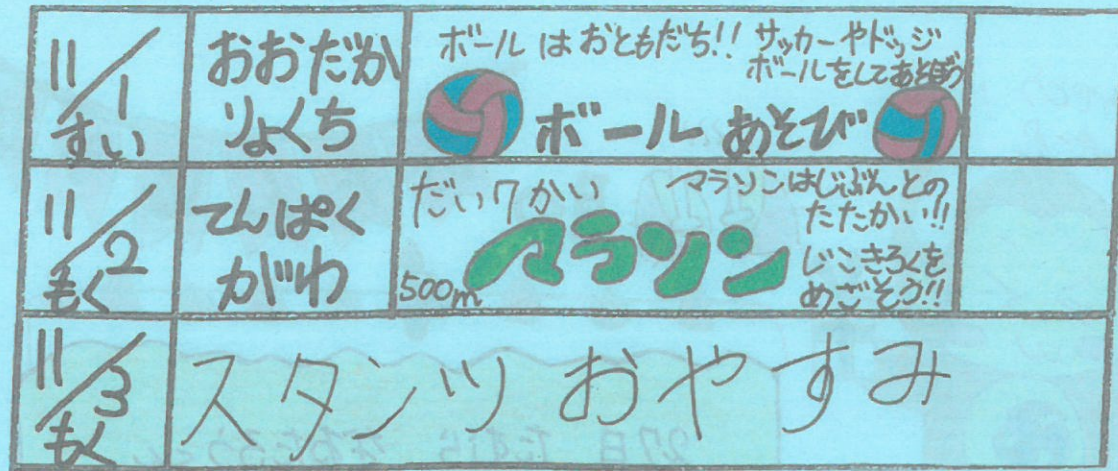 11/1
すい
おおだか
りょくち
ボールはおともだち!! サッカーやドッジ
ボールをしてあそぼう
ボールあそび
11/2
もく
てんぱく
がわ
だい7かい
マラソンはじぶんとの
たたかい!!
500m
マラソン
じこきろくを
めざそう!!
11/3
もく
スタンツおやすみ